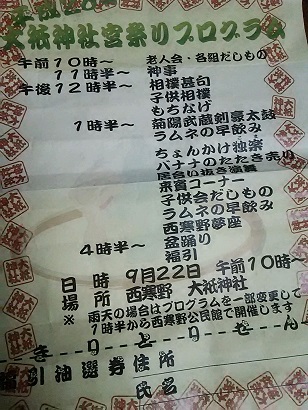 大祇神社宮祭りプログラム
午前10時～ 老人会・各組だしもの
11時半～ 神事
午後12時半～ 相撲甚句
子供相撲
もちなげ
1時半～ 菊陽武蔵剣豪太鼓
ラムネの早飲み
ちょんかけ独楽
バナナのたたき売り
居合い抜き演舞
来賓コーナー
子供会だしもの
ラムネの早飲み
西寒野夢座
4時半～ 盆踊り
福引
日時 9月22日 午前10時～
場所 西寒野 大祇神社
※雨天の場合はプログラムを一部変更して
1時半から西寒野公民館で開催します
きりとりせん
引抽選券住所
氏名